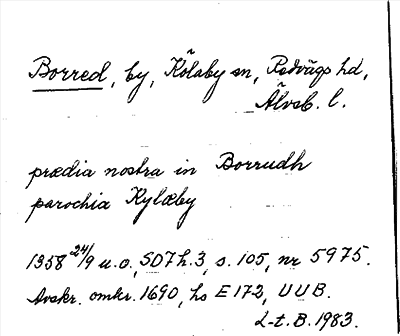 Borred, by, Kölaby sn, Redvägs hd,
Älvsb. l.
prædia nostra in Borrudh
parochia Kylæby
1358 24/9 u.o., SD7 h.3, s. 105, nr 5975.
Avskr. omkr. 1690, hs E 172, UUB.
L-t. B. 1983.